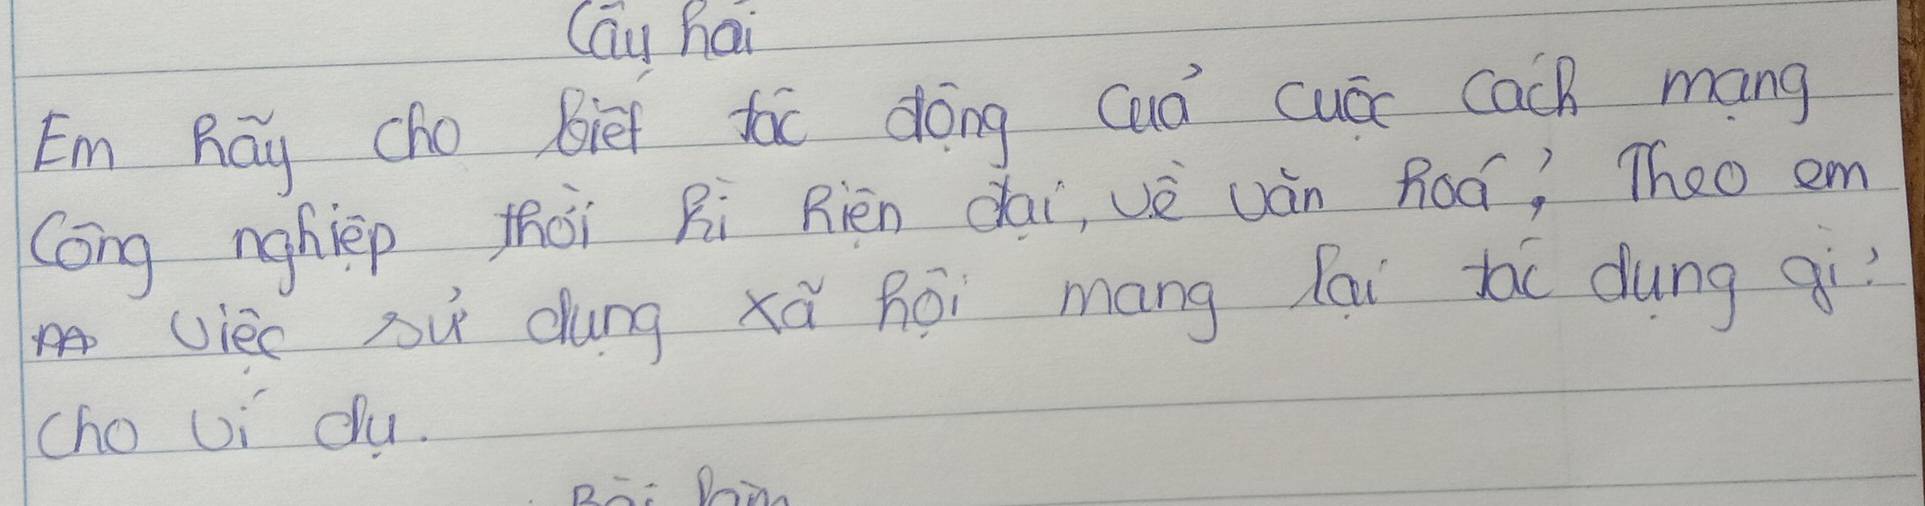 Câu hỏi
Em hãy cho biết tác động cuả cuộc cách mạng
Công nghiệp thời kì hiện đại, về văn hoá? Theo em
việc sử dụng xã hội mang lại tác dụng gì?
cho ví dụ.
Bài làm